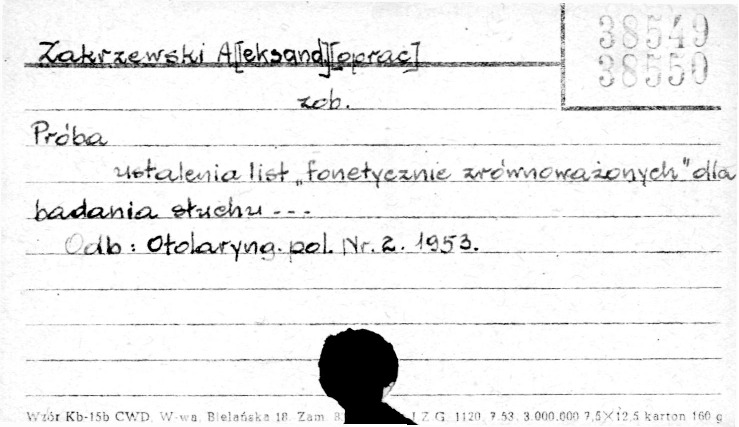 38549
38550
Zakrzewski A[eksand][oprac]
zob.
Próba
ustalenia list „fonetycznie zrównoważonych" dla
badania słuchu ---
Odb: Otolaryng. pol. Nr. 2. 1953.
Wzór Kb-15b CWD, W-wa, Bielańska 18. Zam. Z G. 1120, 7.53. 3.000.000 7,5×12,5 karton 160 g